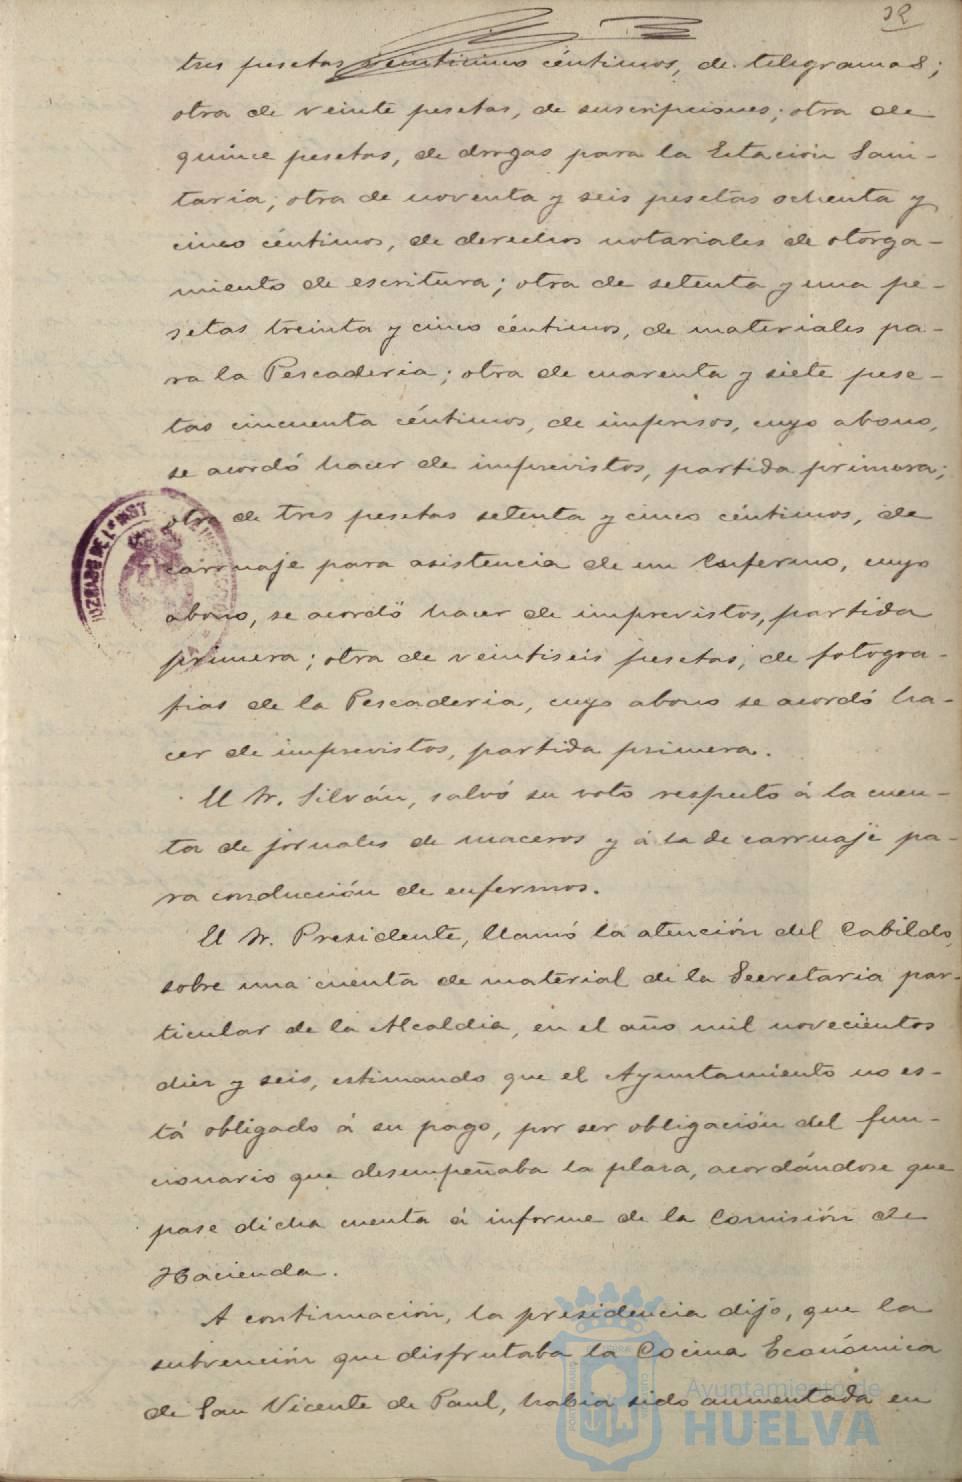 32
tres pesetas veinticinco céntimos, de telegramas;
otra de veinte pesetas, de suscripciones; otra de
quince pesetas, de drogas para la Estación Sani-
taria; otra de noventa y seis pesetas ochenta y
cinco céntimos, de derechos notariales de otorga-
miento de escritura; otra de setenta y una pe-
setas treinta y cinco céntimos, de materiales pa-
ra la Pescaderia; otra de cuarenta y siete pese-
tas cincuenta céntimos, de impresos, cuyo abono,
se acordó hacer de imprevistos, partida primera;
otra de tres pesetas setenta y cinco céntimos, de
carruaje para asistencia de un enfermo, cuyo
abono, se acordó hacer de imprevistos, partida
primera; otra de veintiseis pesetas, de fotogra-
fias de la Pescaderia, cuyo abono se acordó ha-
cer de imprevistos, partida primera.
El Sr. Silván, salvó su voto respecto á la cuen-
ta de jornales de maceros y á la de carruaje pa-
ra conducción de enfermos.
El Sr. Presidente, llamó la atención del Cabildo,
sobre una cuenta de material de la Secretaria par-
ticular de la Alcaldia, en el año mil novecientos
diez y seis, estimando que el Ayuntamiento no es-
tá obligado á su pago, por ser obligación del fun-
cionario que desempeñaba la plaza, acordándose que
pase dicha cuenta á informe de la Comisión de
Hacienda.
A continuación, la presidencia dijo, que la
subvención que disfrutaba la Cocina Económica
de San Vicente de Paul, habia sido aumentada en
JUZGADO DE 1ª INST
Ayuntamiento de
HUELVA